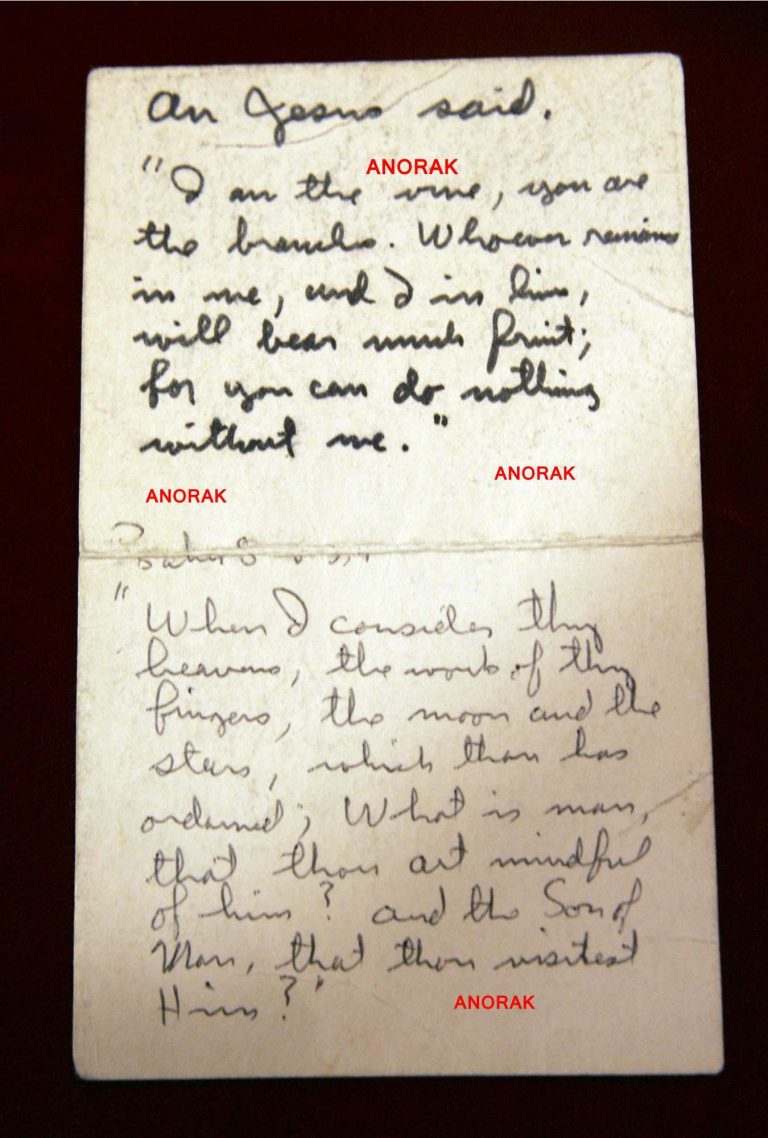 an Jesus said.
ANORAK
"I am the vine, you are
the branches. Whoever remains
in me, and I in him,
will bear much fruit;
for you can do nothing
without me."
ANORAK
ANORAK
Psalm 8 v 3,4
"When I consider thy
heavens, the work of thy
fingers, the moon and the
stars, which thou has
ordained; What is man,
that thou art mindful
of him? and the Son of
Man, that thou visitest
Him?"
ANORAK